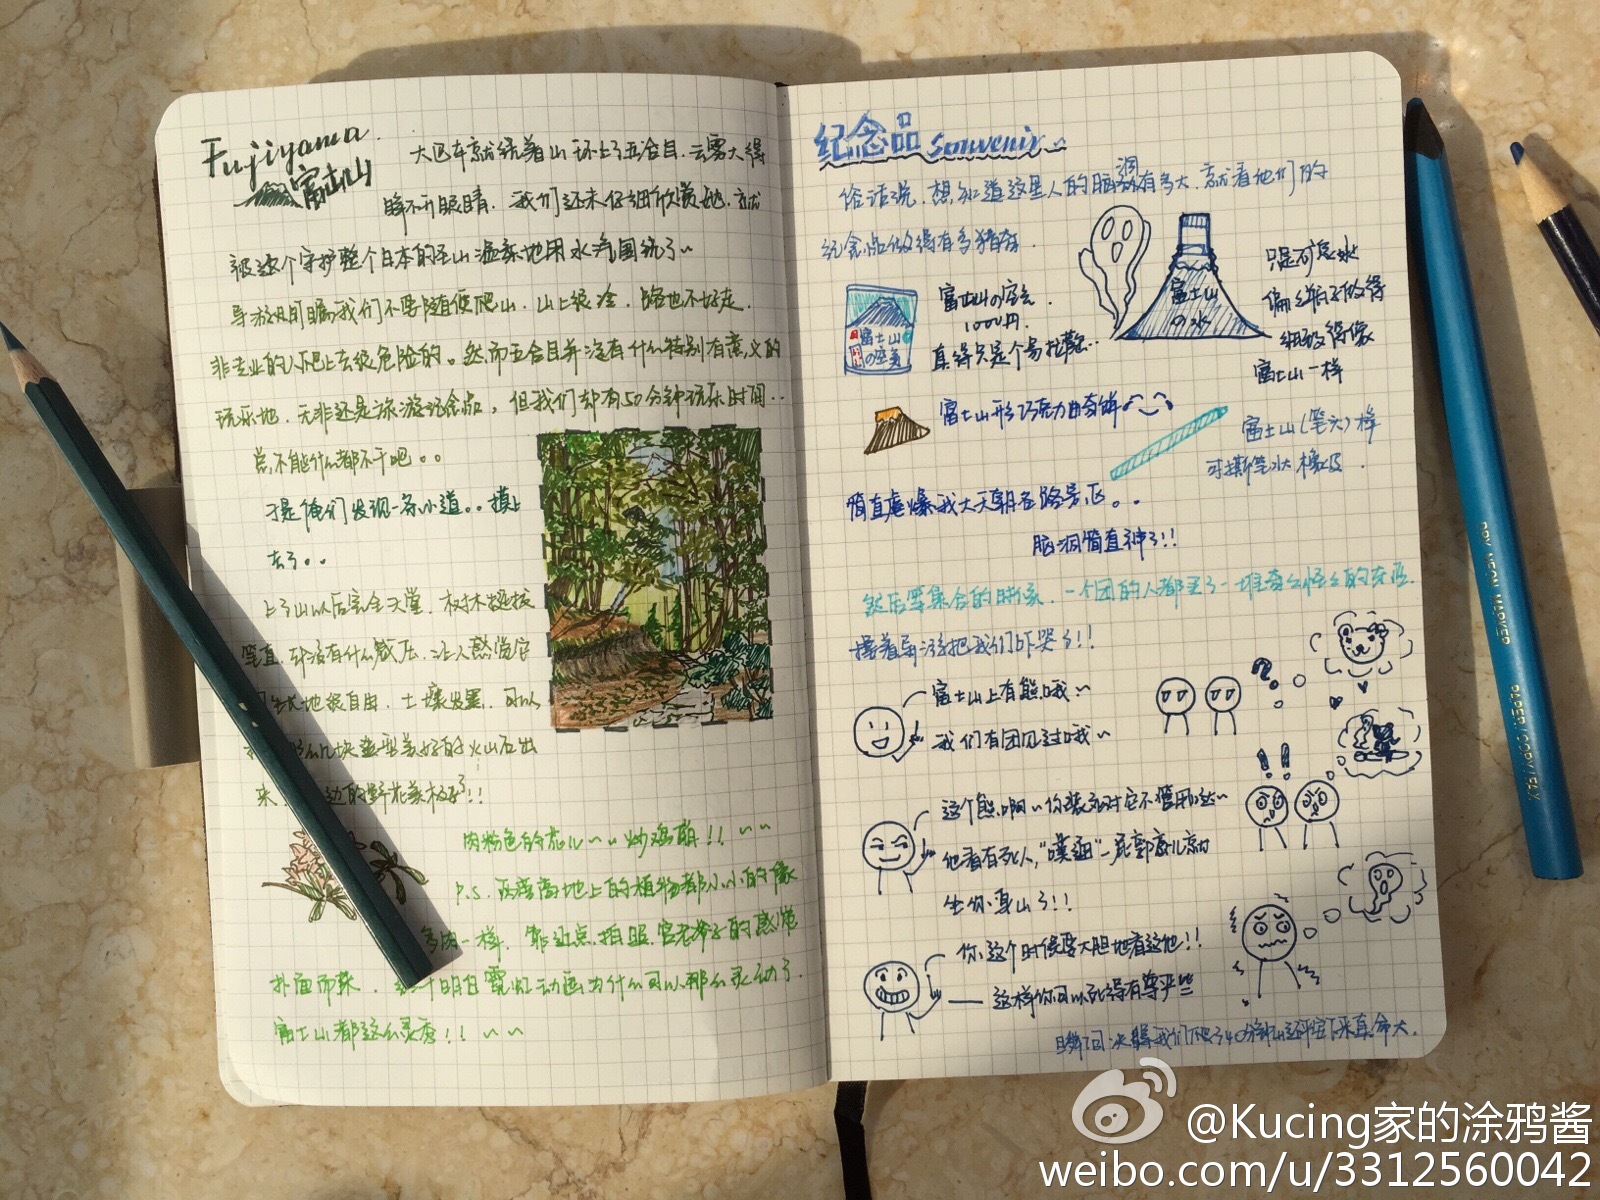 Fujiyama
富士山
大巴车就绕着山环上了五合目.云雾大得
睁不开眼睛.我们还未仔细欣赏她.就
被这个守护整个日本的圣山温柔地用水汽围绕了~
导游叮嘱我们不要随便爬山.山上很冷.路也不好走.
非专业的人爬上去很危险的。然而五合目并没有什么特别有意义的
玩乐地.无非还是旅游纪念品,但我们却有50分钟玩乐时间..
总不能什么都不干吧。。
于是俺们发现一条小道。。摸上
去了。。
上了山以后完全天堂.树木挺拔
笔直.却没有什么感压.让人感觉它
生长地很自由.土壤发黑.可以
几块造型美好的火山石出
来! 边的野花美极了!!
肉粉色的花儿~~炒鸡萌!! ~~
P.S.区离地上的植物都小小的像
多肉一样.靠近点拍照.宫老爷子的感觉
扑面而来. 明白霓虹动画为什么可以那么灵动了
富士山都这么灵秀!! ~~
纪念品 Souvenir~
俗话说.想知道这里人的脑洞有多大.就看他们的
纪念品做得有多猎奇.
富士山の空気.
1000円.
真得只是个易拉罐..
富士山
の空気
富士山
の水
只是矿泉水
偏生瓶子做得
细致得像
富士山一样
富士山形巧克力曲奇饼
富士山(笔头)样
可擦笔水橡皮.
简直虐爆我大天朝各路景区。。
脑洞简直神了!!
然后等集合的时候.一个团的人都买了一堆奇奇怪怪的东西.
接着导游把我们吓哭了!!
富士山上有熊哦~
我们有团见过哦~
这个熊啊~你装死对它不管用哒~
他看有死人,"噗通"一屁郭蹲儿就
坐你身山了!!
你这个时候要大胆地看这他!!
——这样你可以死得有尊严些
瞬间决得我们爬了40分钟山还活下来真命大.
@Kucing家的涂鸦酱
weibo.com/u/3312560042